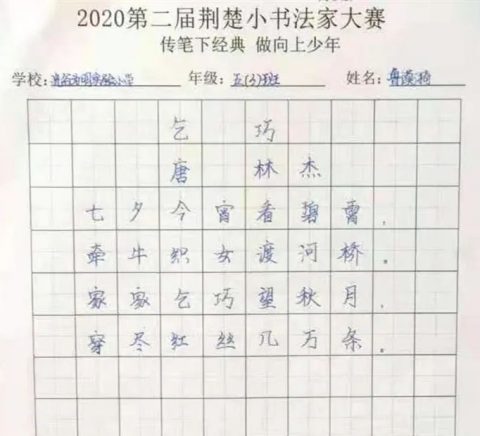 2020第二届荆楚小书法家大赛
传笔下经典 做向上少年
学校: 年级:五(3)班 姓名:
乞 巧
唐 林 杰
七夕今宵看碧霄,
牵牛织女渡河桥。
家家乞巧望秋月,
穿尽红丝几万条。